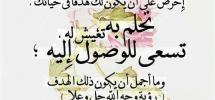 إحرص على أن يكون لك هدفاً في حياتك .
تحلم به تعيش له ،
تسعى للوصول إليه ؛
وما أجمل أن يكون ذلك الهدف
( رؤية وجه الله جل وعلا )